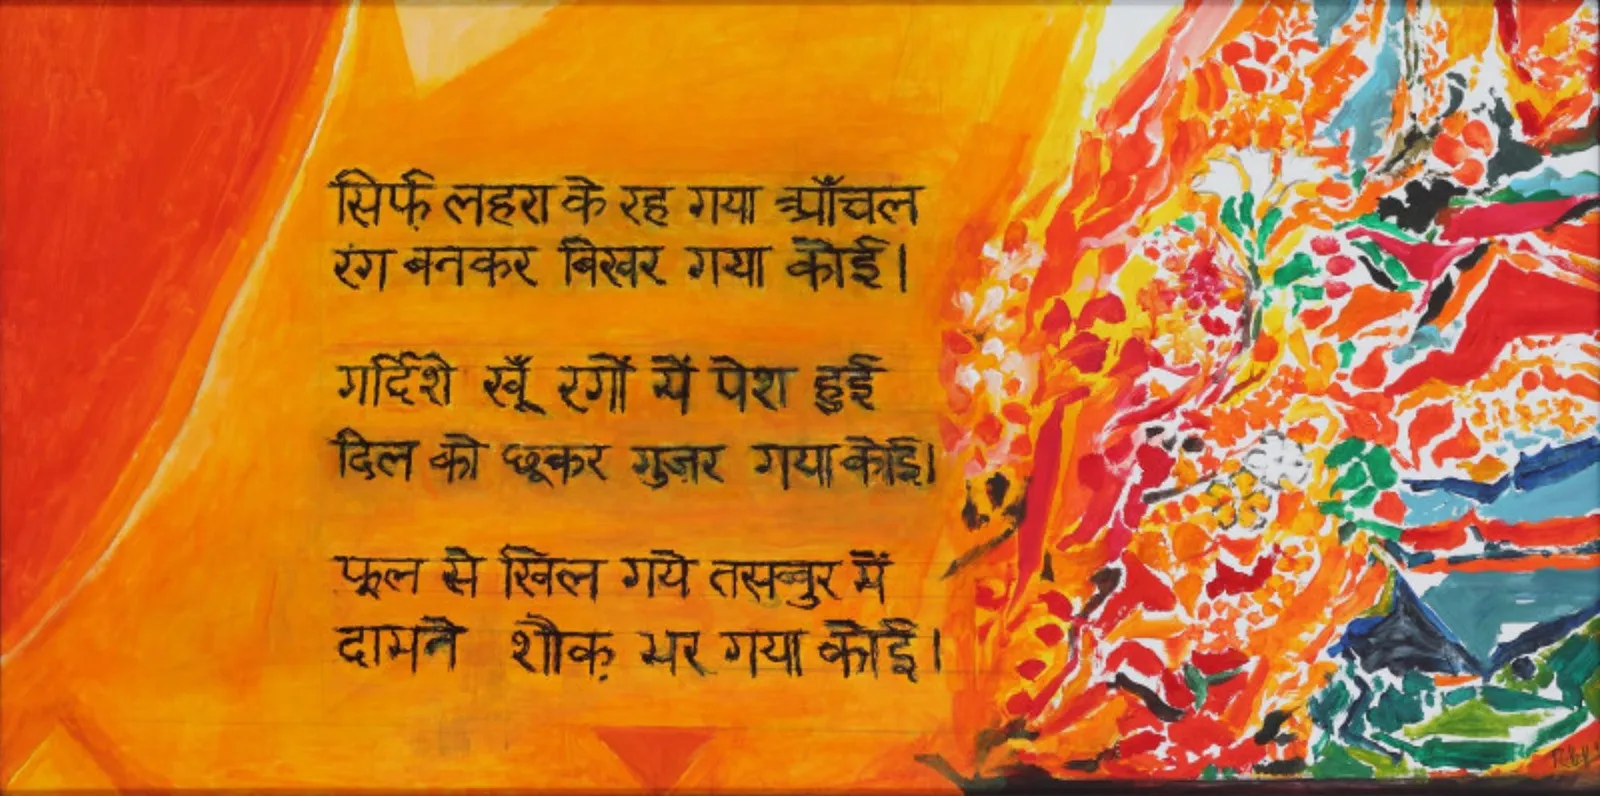 सिर्फ़ लहरा के रह गया आँचल
रंग बनकर बिखर गया कोई।
गर्दिशे खूँ रगों में पेश हुई
दिल को छूकर गुज़र गया कोई।
फूल से खिल गये तसव्वुर में
दामने शौक़ भर गया कोई।